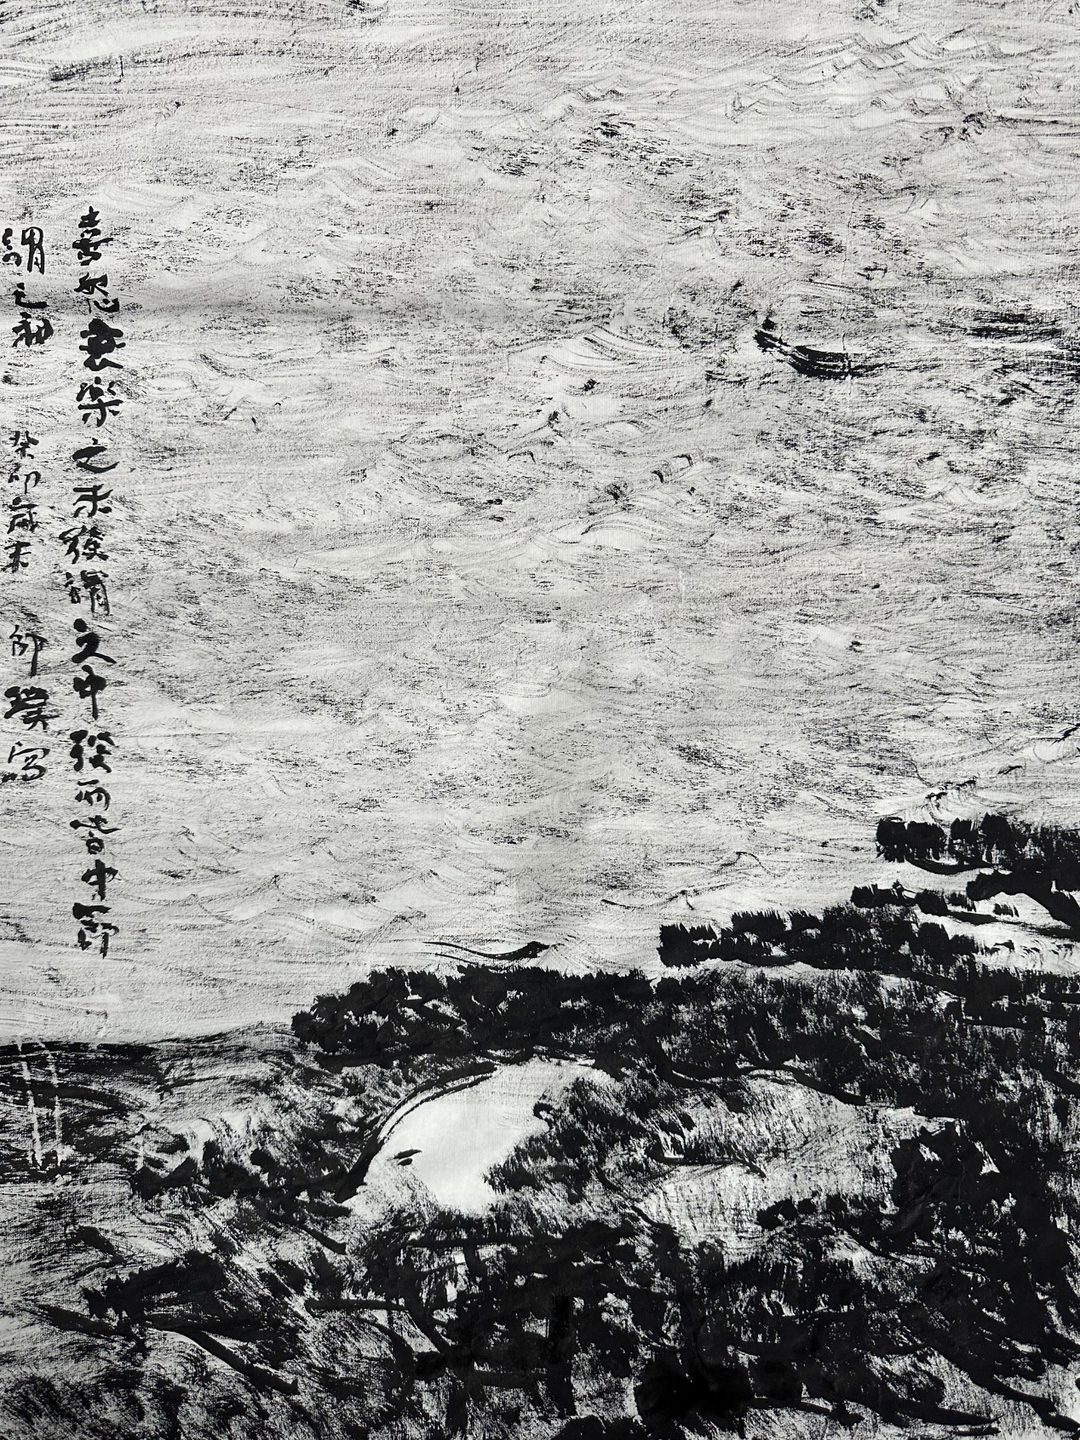 喜怒哀樂之未發謂之中發而皆中節
謂之和
癸卯歲末 師璞寫